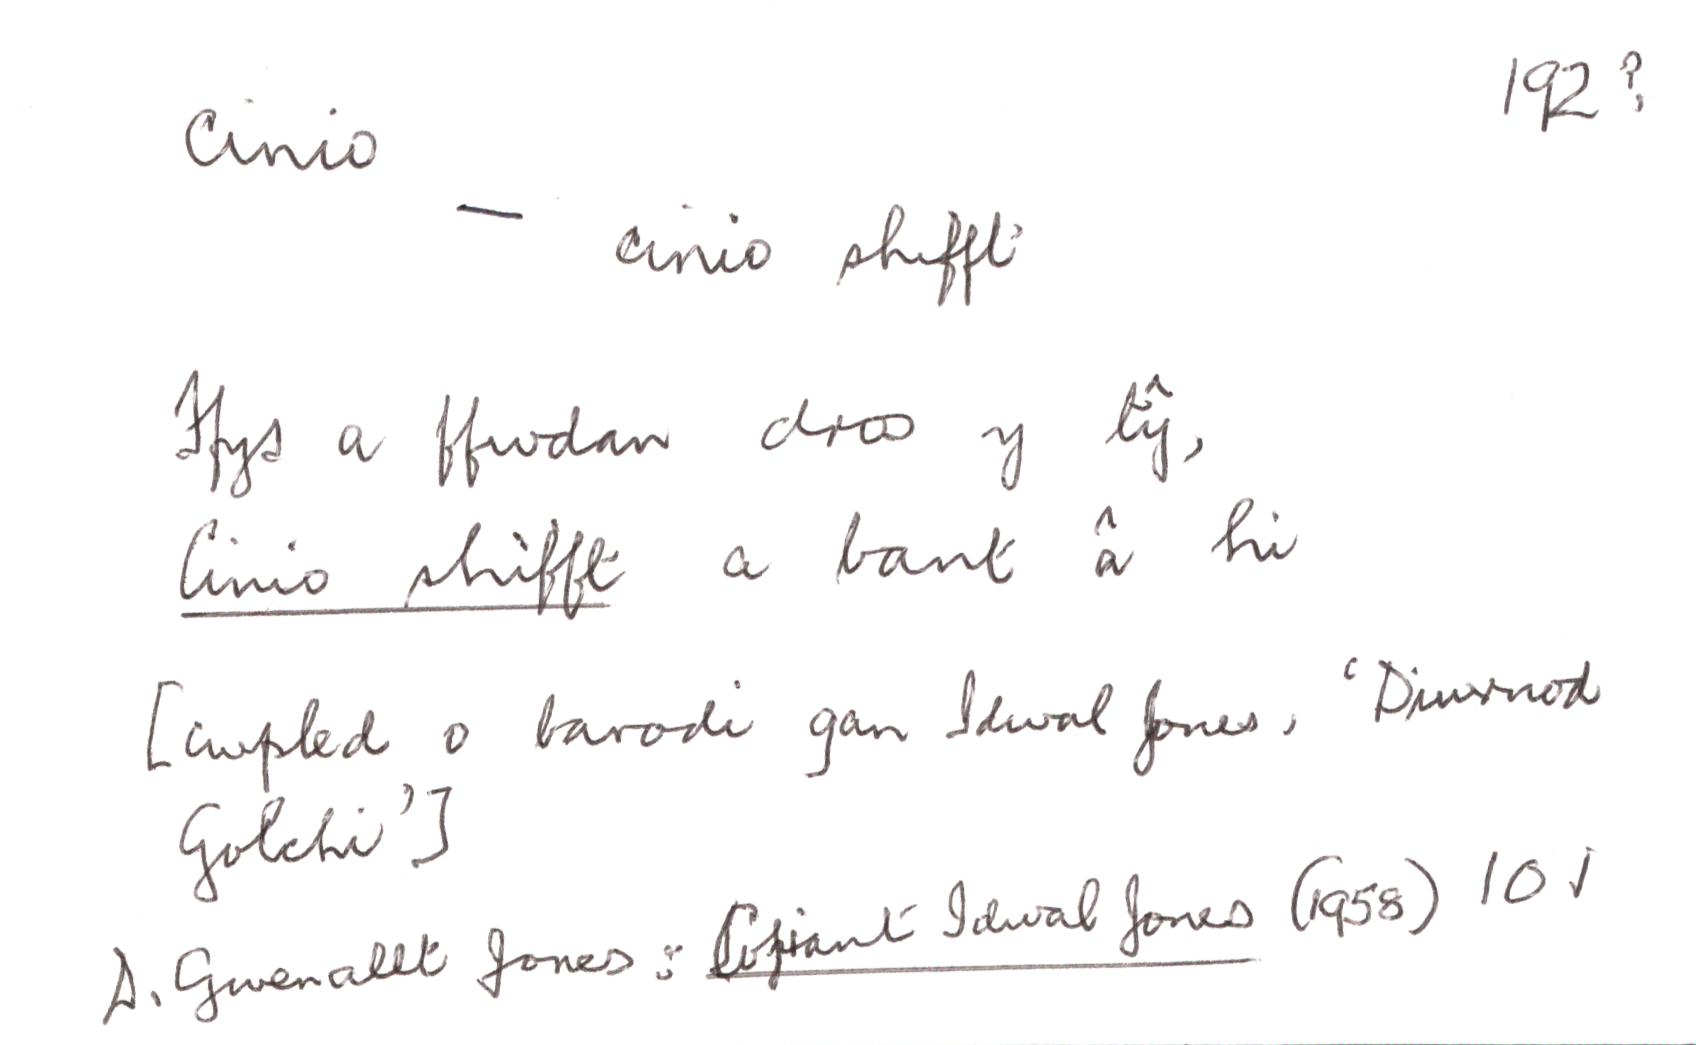 192?
cinio
— cinio shifft
Ffys a ffwdan dros y tŷ,
Cinio shifft a bant â hi
[cwpled o barodi gan Idwal Jones, 'Diwrnod
Golchi']
D. Gwenallt Jones: Cofiant Idwal Jones (1958) 101